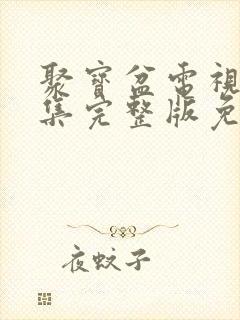 聚寶盆電視
集完整版免
夜蚊子